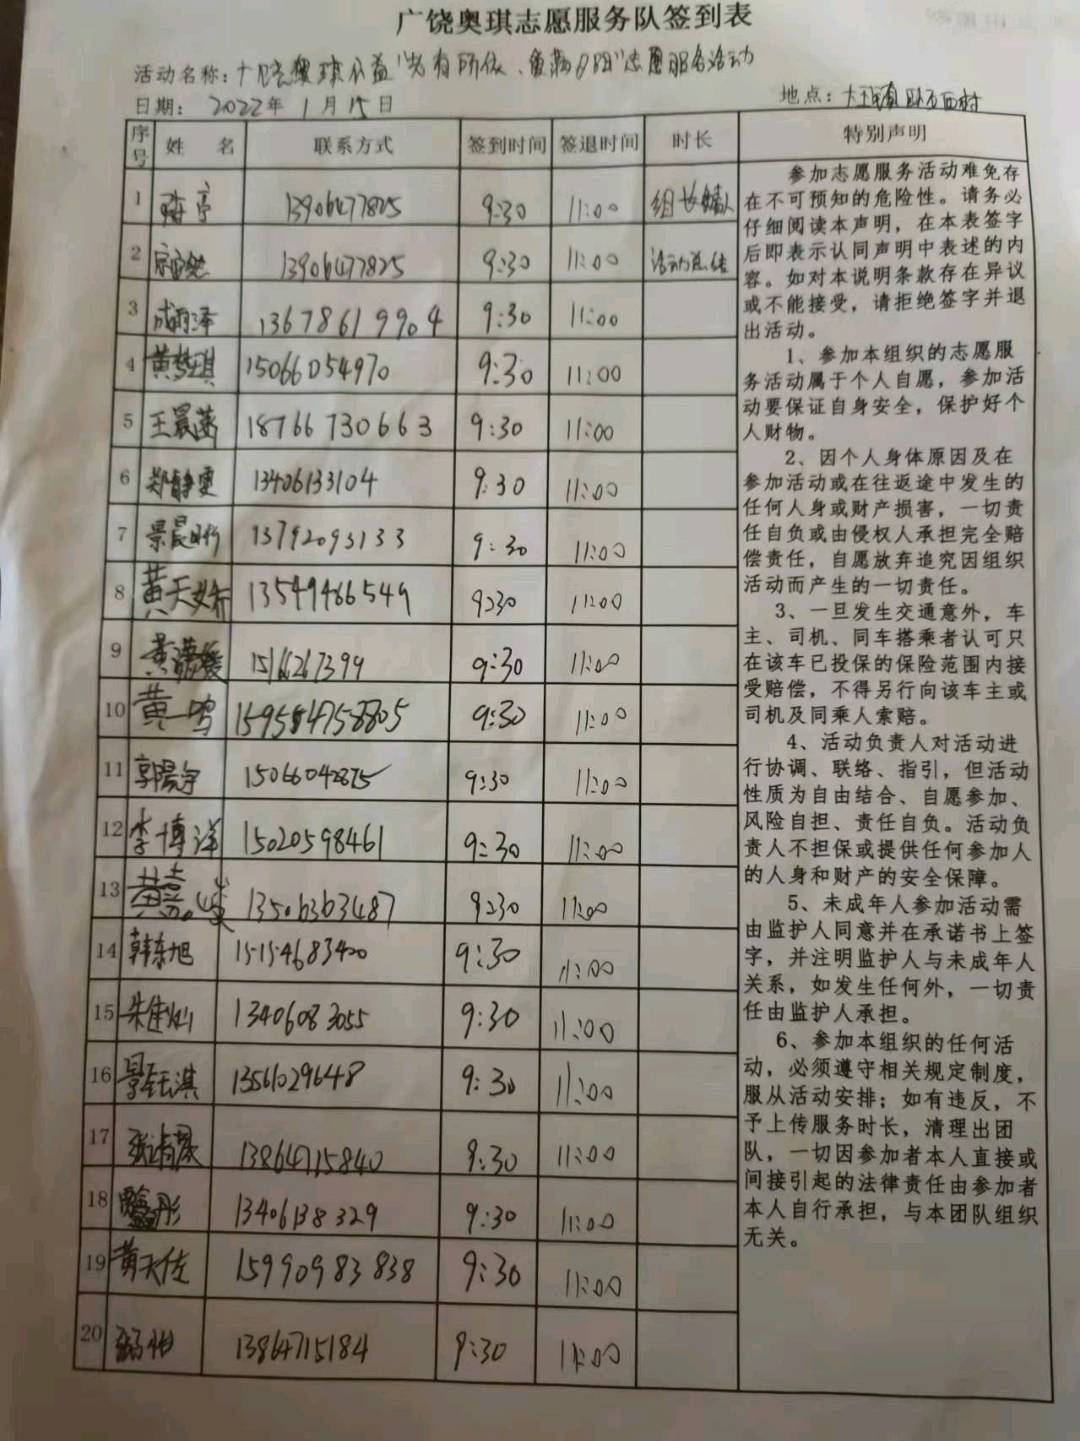 广饶奥琪志愿服务队签到表
活动名称:
日期: 2022年1月15日
地点:
序号 姓名 联系方式 签到时间 签退时间 时长 特别声明
1 13906477825 9:30 11:00 组长
2 13906477825 9:30 11:00 活动总结
3 成雨泽 13678619904 9:30 11:00
4 黄梦琪 15066054970 9:30 11:00
5 王晨菡 18766730663 9:30 11:00
6 郑静雯 13406133104 9:30 11:00
7 13792093133 9:30 11:00
8 黄天娇 13549466549 9:30 11:00
9 15166267399 9:30 11:00
10 黄一鸣 9:30 11:00
11 郭晨宇 15066042875 9:30 11:00
12 李博洋 15020598461 9:30 11:00
13 13506363487 9:30 11:00
14 韩东旭 15154683400 9:30 11:00
15 13406083055 9:30 11:00
16 景钰淇 13561029648 9:30 11:00
17 13864715840 9:30 11:00
18 13406138329 9:30 11:00
19 黄天佐 15990983838 9:30 11:00
20 13864715184 9:30 11:00
参加志愿服务活动难免存
在不可预知的危险性。请务必
仔细阅读本声明,在本表签字
后即表示认同声明中表述的内
容。如对本说明条款存在异议
或不能接受,请拒绝签字并退
出活动。
1、参加本组织的志愿服
务活动属于个人自愿,参加活
动要保证自身安全,保护好个
人财物。
2、因个人身体原因及在
参加活动或在往返途中发生的
任何人身或财产损害,一切责
任自负或由侵权人承担完全赔
偿责任,自愿放弃追究因组织
活动而产生的一切责任。
3、一旦发生交通意外,车
主、司机、同车搭乘者认可只
在该车已投保的保险范围内接
受赔偿,不得另行向该车主或
司机及同乘人索赔。
4、活动负责人对活动进
行协调、联络、指引,但活动
性质为自由结合、自愿参加、
风险自担、责任自负。活动负
责人不担保或提供任何参加人
的人身和财产的安全保障。
5、未成年人参加活动需
由监护人同意并在承诺书上签
字,并注明监护人与未成年人
关系,如发生任何外,一切责
任由监护人承担。
6、参加本组织的任何活
动,必须遵守相关规定制度,
服从活动安排;如有违反,不
予上传服务时长,清理出团
队,一切因参加者本人直接或
间接引起的法律责任由参加者
本人自行承担,与本团队组织
无关。